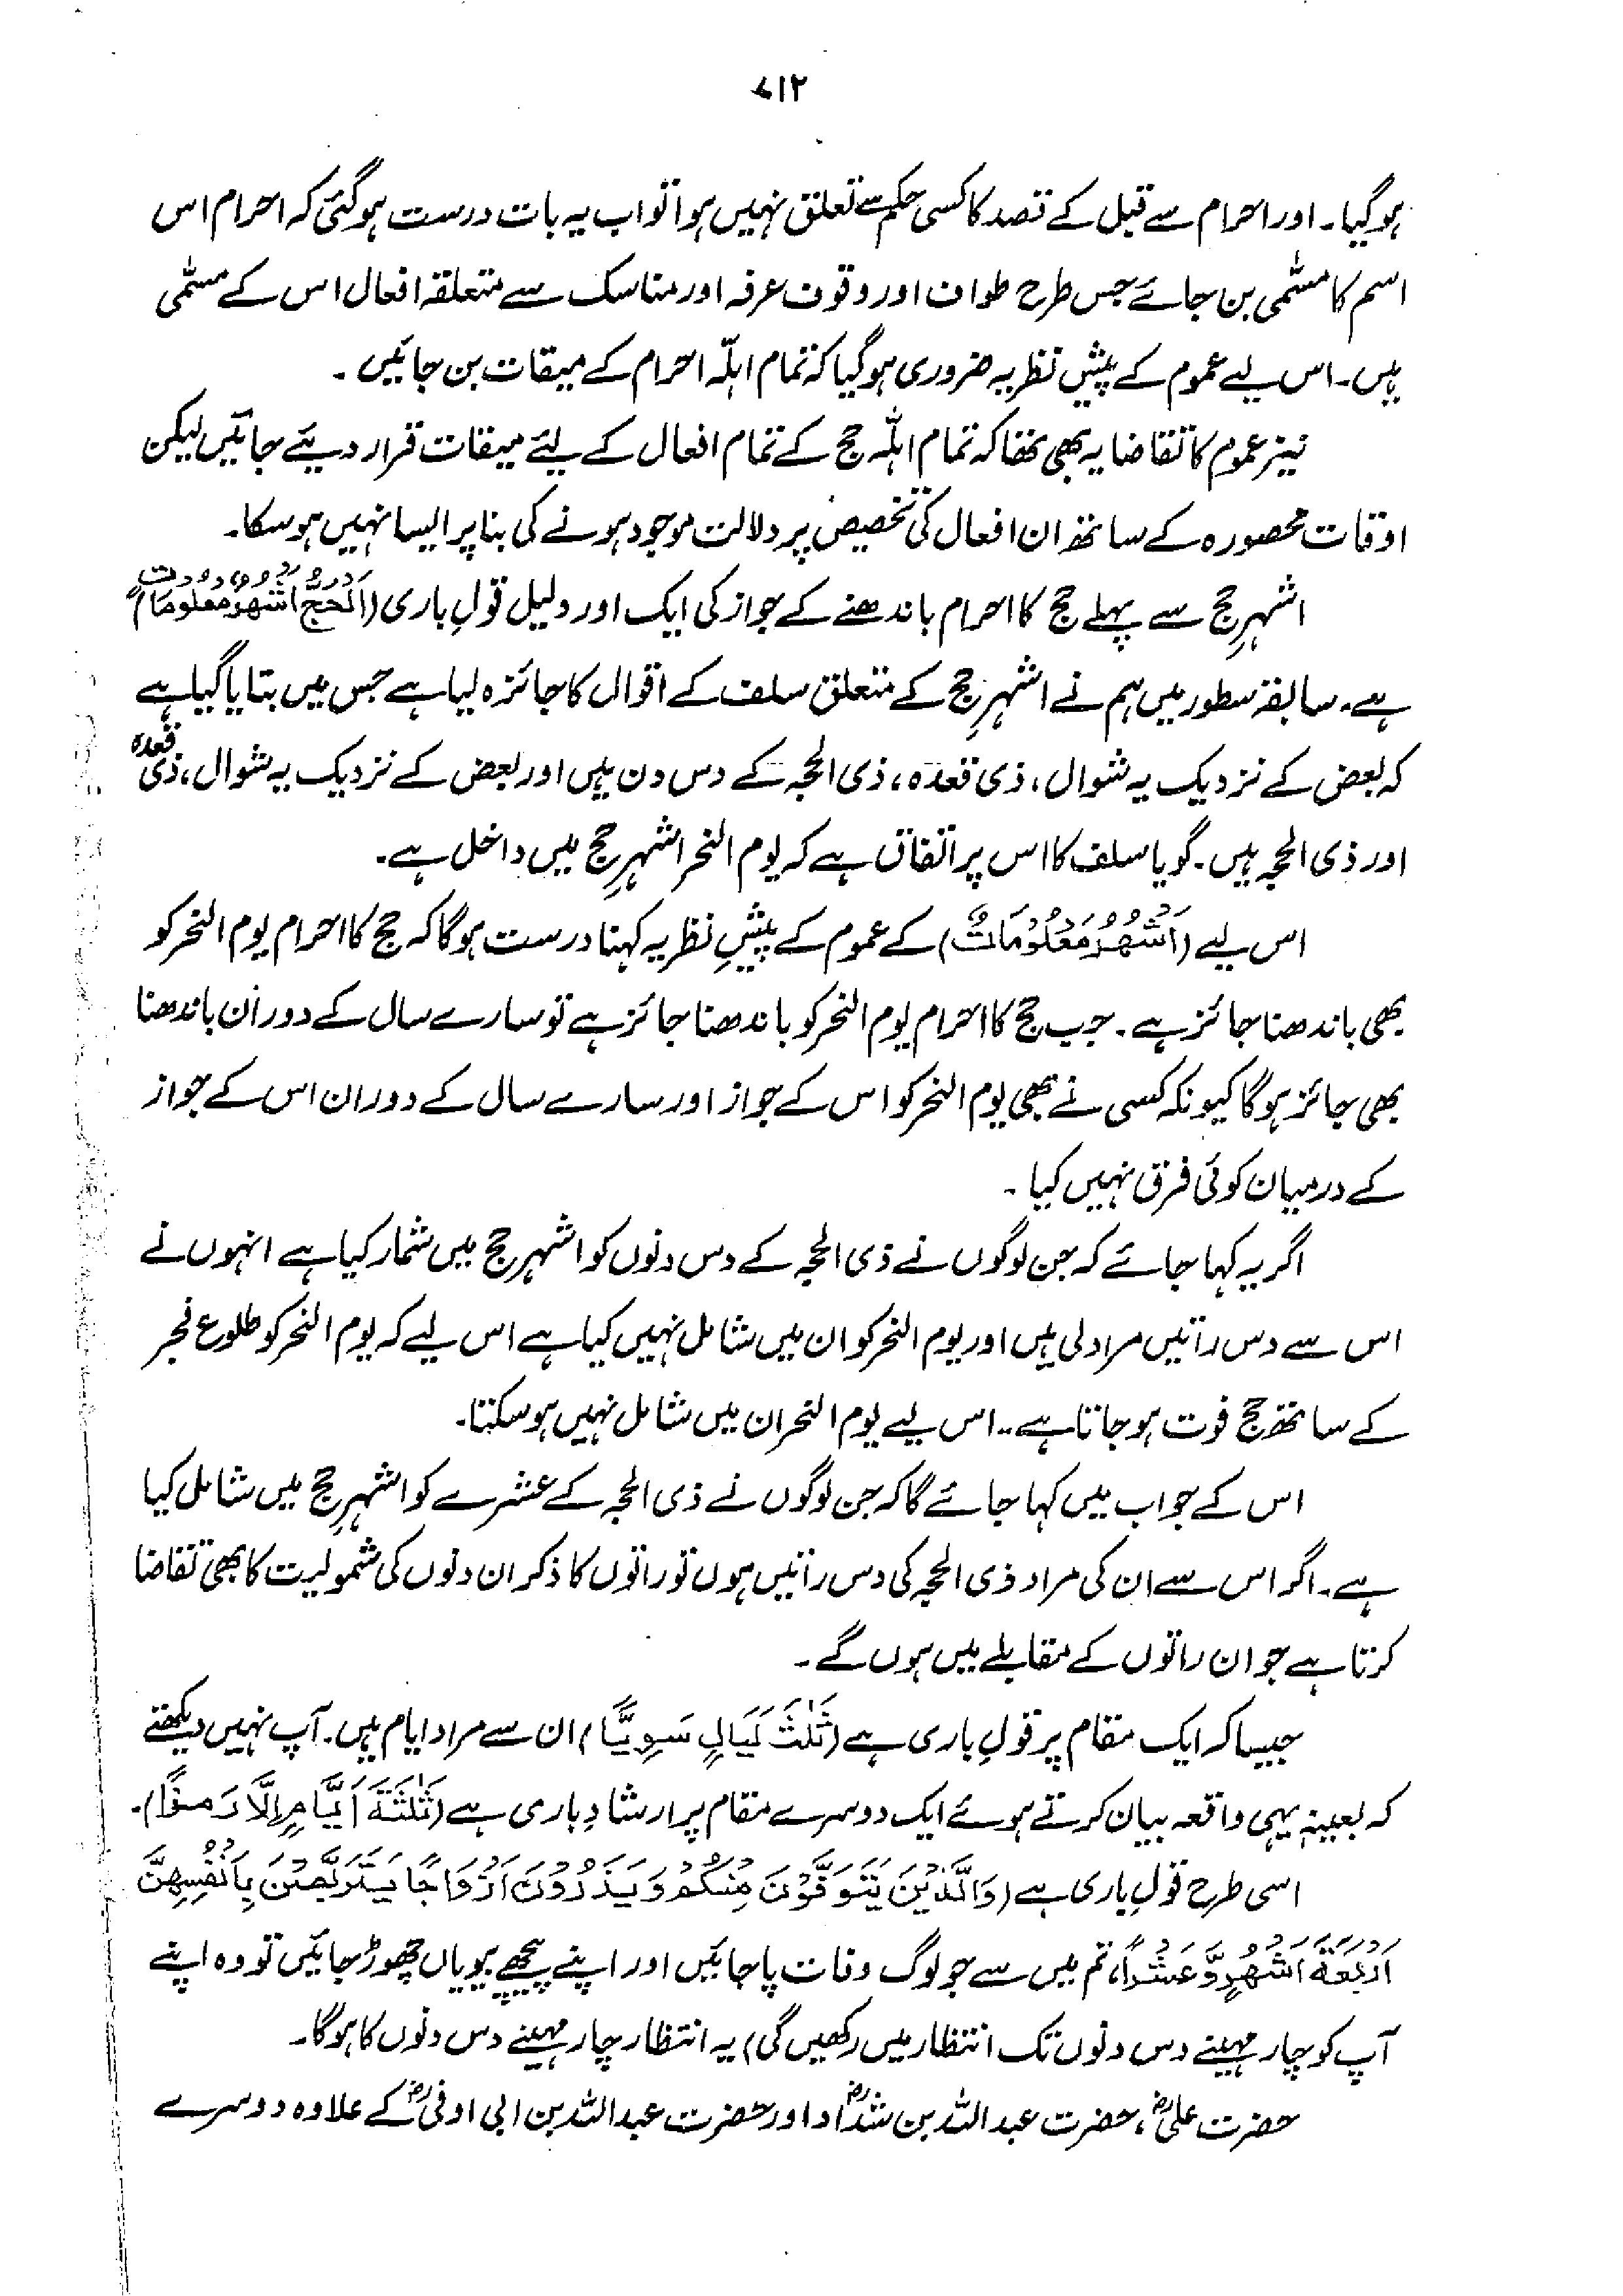 ۷۱۲
ہوگیا۔ اور احرام سے قبل کے قصد کا کسی حکم سے تعلق نہیں ہوا تو اب یہ بات درست ہوگئی کہ احرام اس
اسم کا مسمّٰی بن جائے جس طرح طواف اور وقوف عرفہ اور مناسک سے متعلقہ افعال اس کے مسمّٰی
ہیں۔ اس لیے عموم کے پیشِ نظر یہ ضروری ہوگیا کہ تمام اہلّہ احرام کے میقات بن جائیں۔
نیز عموم کا تقاضا یہ بھی تھا کہ تمام اہلّہ حج کے تمام افعال کے لیئے میقات قرار دیئے جائیں لیکن
اوقات محصورہ کے ساتھ ان افعال کی تخصیص پر دلالت موجود ہونے کی بنا پر ایسا نہیں ہوسکا۔
اشہرِ حج سے پہلے حج کا احرام باندھنے کے جواز کی ایک اور دلیل قولِ باری (اَلْحَجُّ اَشْهُرٌ مَّعْلُوْمَاتٌ)
ہے۔ سابقہ سطور میں ہم نے اشہرِ حج کے متعلق سلف کے اقوال کا جائزہ لیا ہے جس میں بتایا گیا ہے
کہ بعض کے نزدیک یہ شوال، ذی قعدہ، ذی الحجہ کے دس دن ہیں اور بعض کے نزدیک یہ شوال، ذی قعدہ
اور ذی الحجہ ہیں۔ گویا سلف کا اس پر اتفاق ہے کہ یوم النحر اشہرِ حج میں داخل ہے۔
اس لیے (اَشْهُرٌ مَعْلُوْمَاتٌ) کے عموم کے پیشِ نظر یہ کہنا درست ہوگا کہ حج کا احرام یوم النحر کو
بھی باندھنا جائز ہے۔ جب حج کا احرام یوم النحر کو باندھنا جائز ہے تو سارے سال کے دوران باندھنا
بھی جائز ہوگا کیونکہ کسی نے بھی یوم النحر کو اس کے جواز اور سارے سال کے دوران اس کے جواز
کے درمیان کوئی فرق نہیں کیا۔
اگر یہ کہا جائے کہ جن لوگوں نے ذی الحجہ کے دس دنوں کو اشہر حج میں شمار کیا ہے انہوں نے
اس سے دس راتیں مراد لی ہیں اور یوم النحر کو ان میں شامل نہیں کیا ہے اس لیے کہ یوم النحر کو طلوع فجر
کے ساتھ حج فوت ہوجاتا ہے۔ اس لیے یوم النحر ان میں شامل نہیں ہوسکتا۔
اس کے جواب میں کہا جائے گا کہ جن لوگوں نے ذی الحجہ کے عشرے کو اشہرِ حج میں شامل کیا
ہے۔ اگر اس سے ان کی مراد ذی الحجہ کی دس راتیں ہوں تو راتوں کا ذکر ان دنوں کی شمولیت کا بھی تقاضا
کرتا ہے جو ان راتوں کے مقابلے میں ہوں گے۔
جیسا کہ ایک مقام پر قولِ باری ہے (ثَلٰثَ لَيَالٍ سَوِيًّا) ان سے مراد ایام ہیں۔ آپ نہیں دیکھتے
کہ بعینہٖ یہی واقعہ بیان کرتے ہوئے ایک دوسرے مقام پر ارشادِ باری ہے (ثَلٰثَةَ اَيَّامٍ اِلَّا رَمْزًا)۔
اسی طرح قولِ باری ہے (وَالَّذِيْنَ يُتَوَفَّوْنَ مِنْكُمْ وَيَذَرُوْنَ اَزْوَاجًا يَتَرَبَّصْنَ بِاَنْفُسِهِنَّ
اَرْبَعَةَ اَشْهُرٍ وَّعَشْرًا، تم میں سے جو لوگ وفات پا جائیں اور اپنے پیچھے بیویاں چھوڑ جائیں تو وہ اپنے
آپ کو چار مہینے دس دنوں تک انتظار میں رکھیں گی) یہ انتظار چار مہینے دس دنوں کا ہوگا۔
حضرت علیؓ، حضرت عبداللہ بن شدادؓ اور حضرت عبداللہ بن ابی اوفیؓ کے علاوہ دوسرے